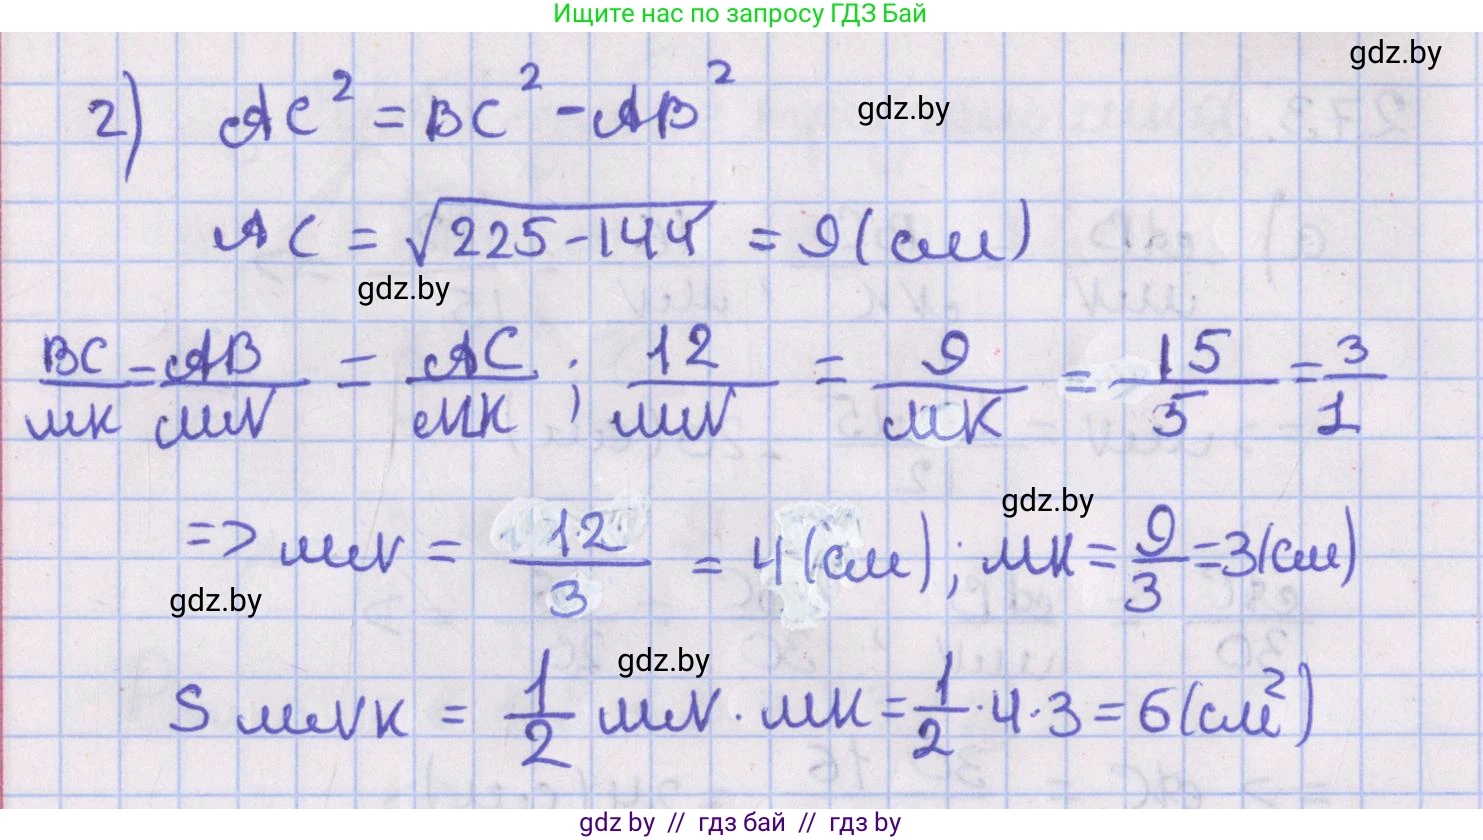 Ищите нас по запросу ГДЗ Бай
gdz.by
2) AC² = BC² - AB²
gdz.by
AC = √(225-144) = 9 (см)
gdz.by
BC/MK = AB/MN = AC/MK ; 12/MN = 9/MK = 15/5 = 3/1
gdz.by
=> MN = 12/3 = 4 (см) ; MK = 9/3 = 3 (см)
gdz.by
gdz.by
S MNK = 1/2 MN · MK = 1/2 · 4 · 3 = 6 (см²)
gdz.by // гдз бай // гдз by